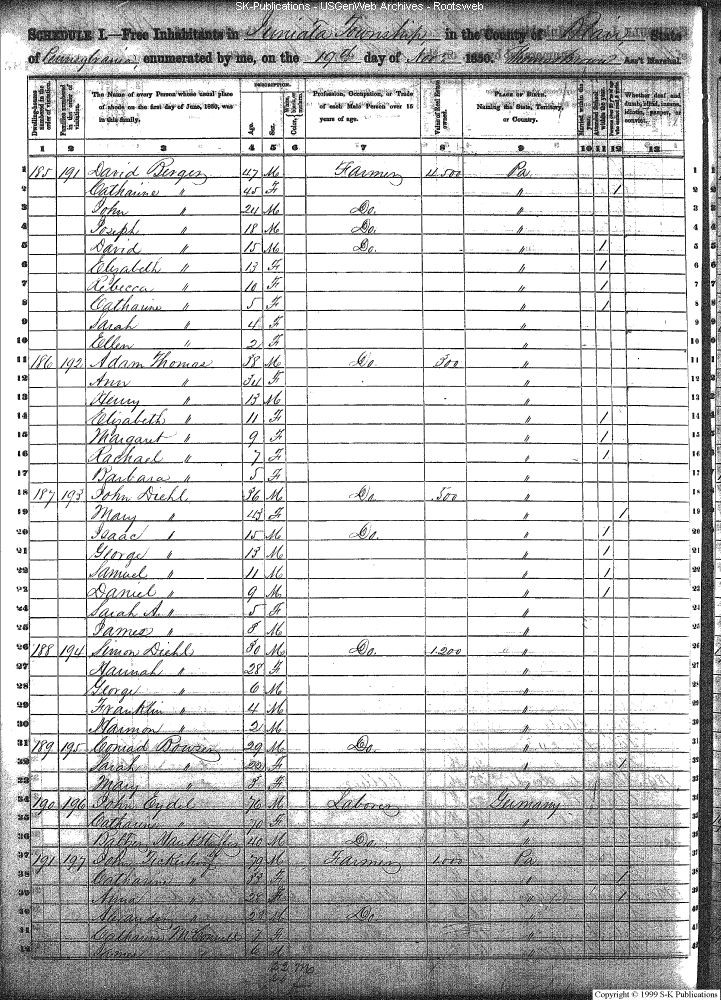 SK-Publications - USGenWeb Archives - Rootsweb
SCHEDULE I.—Free Inhabitants in Juniata Township in the County of Blair State
of Pennsylvania, enumerated by me, on the 19th day of Novr 1850. Thomas Ass't Marshal.
Dwelling-houses numbered in the order of visitation.
Families numbered in the order of visitation.
The Name of every Person whose usual place of abode on the first day of June, 1850, was in this family.
DESCRIPTION.
Age.
Sex.
Color,
Profession, Occupation, or Trade of each Male Person over 15 years of age.
Value of Real Estate owned.
PLACE OF BIRTH. Naming the State, Territory, or Country.
Married within the year.
Attended School within the year.
Whether deaf and dumb, blind, insane, idiotic, pauper, or convict.
1 2 3 4 5 6 7 8 9 10 11 12 13
1 185 191 David Berger 47 M Farmer 4,500 Pa 1
2 Catharine " 45 F " 1 2
3 John " 24 M Do. " 3
4 Joseph " 18 M Do. " 4
5 David " 15 M Do. " 1 5
6 Elizabeth " 13 F " 1 6
7 Rebecca " 10 F " 1 7
8 Catharine " 5 F " 1 8
9 Sarah " 4 F " 9
10 Ellen " 2 F " 10
11 186 192 Adam Thomas 38 M Do. 300 " 11
12 Ann " 34 F " 12
13 Henry " 13 M " 13
14 Elizabeth " 11 F " 1 14
15 Margaret " 9 F " 1 15
16 Rachael " 7 F " 1 16
17 Barbara " 5 F " 17
18 187 193 John Diehl 36 M Do. 500 " 18
19 Mary " 43 F " 1 19
20 Isaac " 15 M Do. " 1 20
21 George " 13 M " 1 21
22 Samuel " 11 M " 1 22
23 Daniel " 9 M " 1 23
24 Sarah A. " 5 F " 24
25 James " 3 M " 25
26 188 194 Simon Diehl 30 M Do. 1.200 " 26
27 Hannah " 28 F " 27
28 George " 6 M " 28
29 Franklin " 4 M " 29
30 Harmon " 2 M " 30
31 189 195 Conrad Bowser 29 M Do. " 31
32 Sarah " 22 F " 1 32
33 Mary " 3 F " 33
34 190 196 John 76 M Laborer Germany 34
35 Catharine " 70 F " 35
36 40 M Do. " 36
37 191 197 John 70 M Farmer 1.000 Pa 37
38 Catharine " 33 F " 1 38
39 Anna " 28 F " 1 39
40 " M Do. " 40
41 Catharine McConnell 7 F " 41
42 James 6 42
Copyright © 1999 S-K Publications